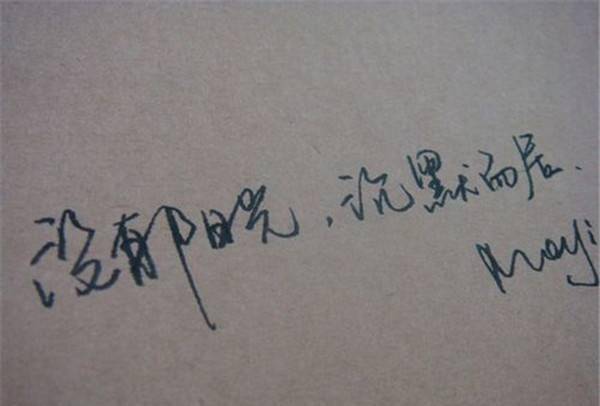 没有阳光，沉默而居.